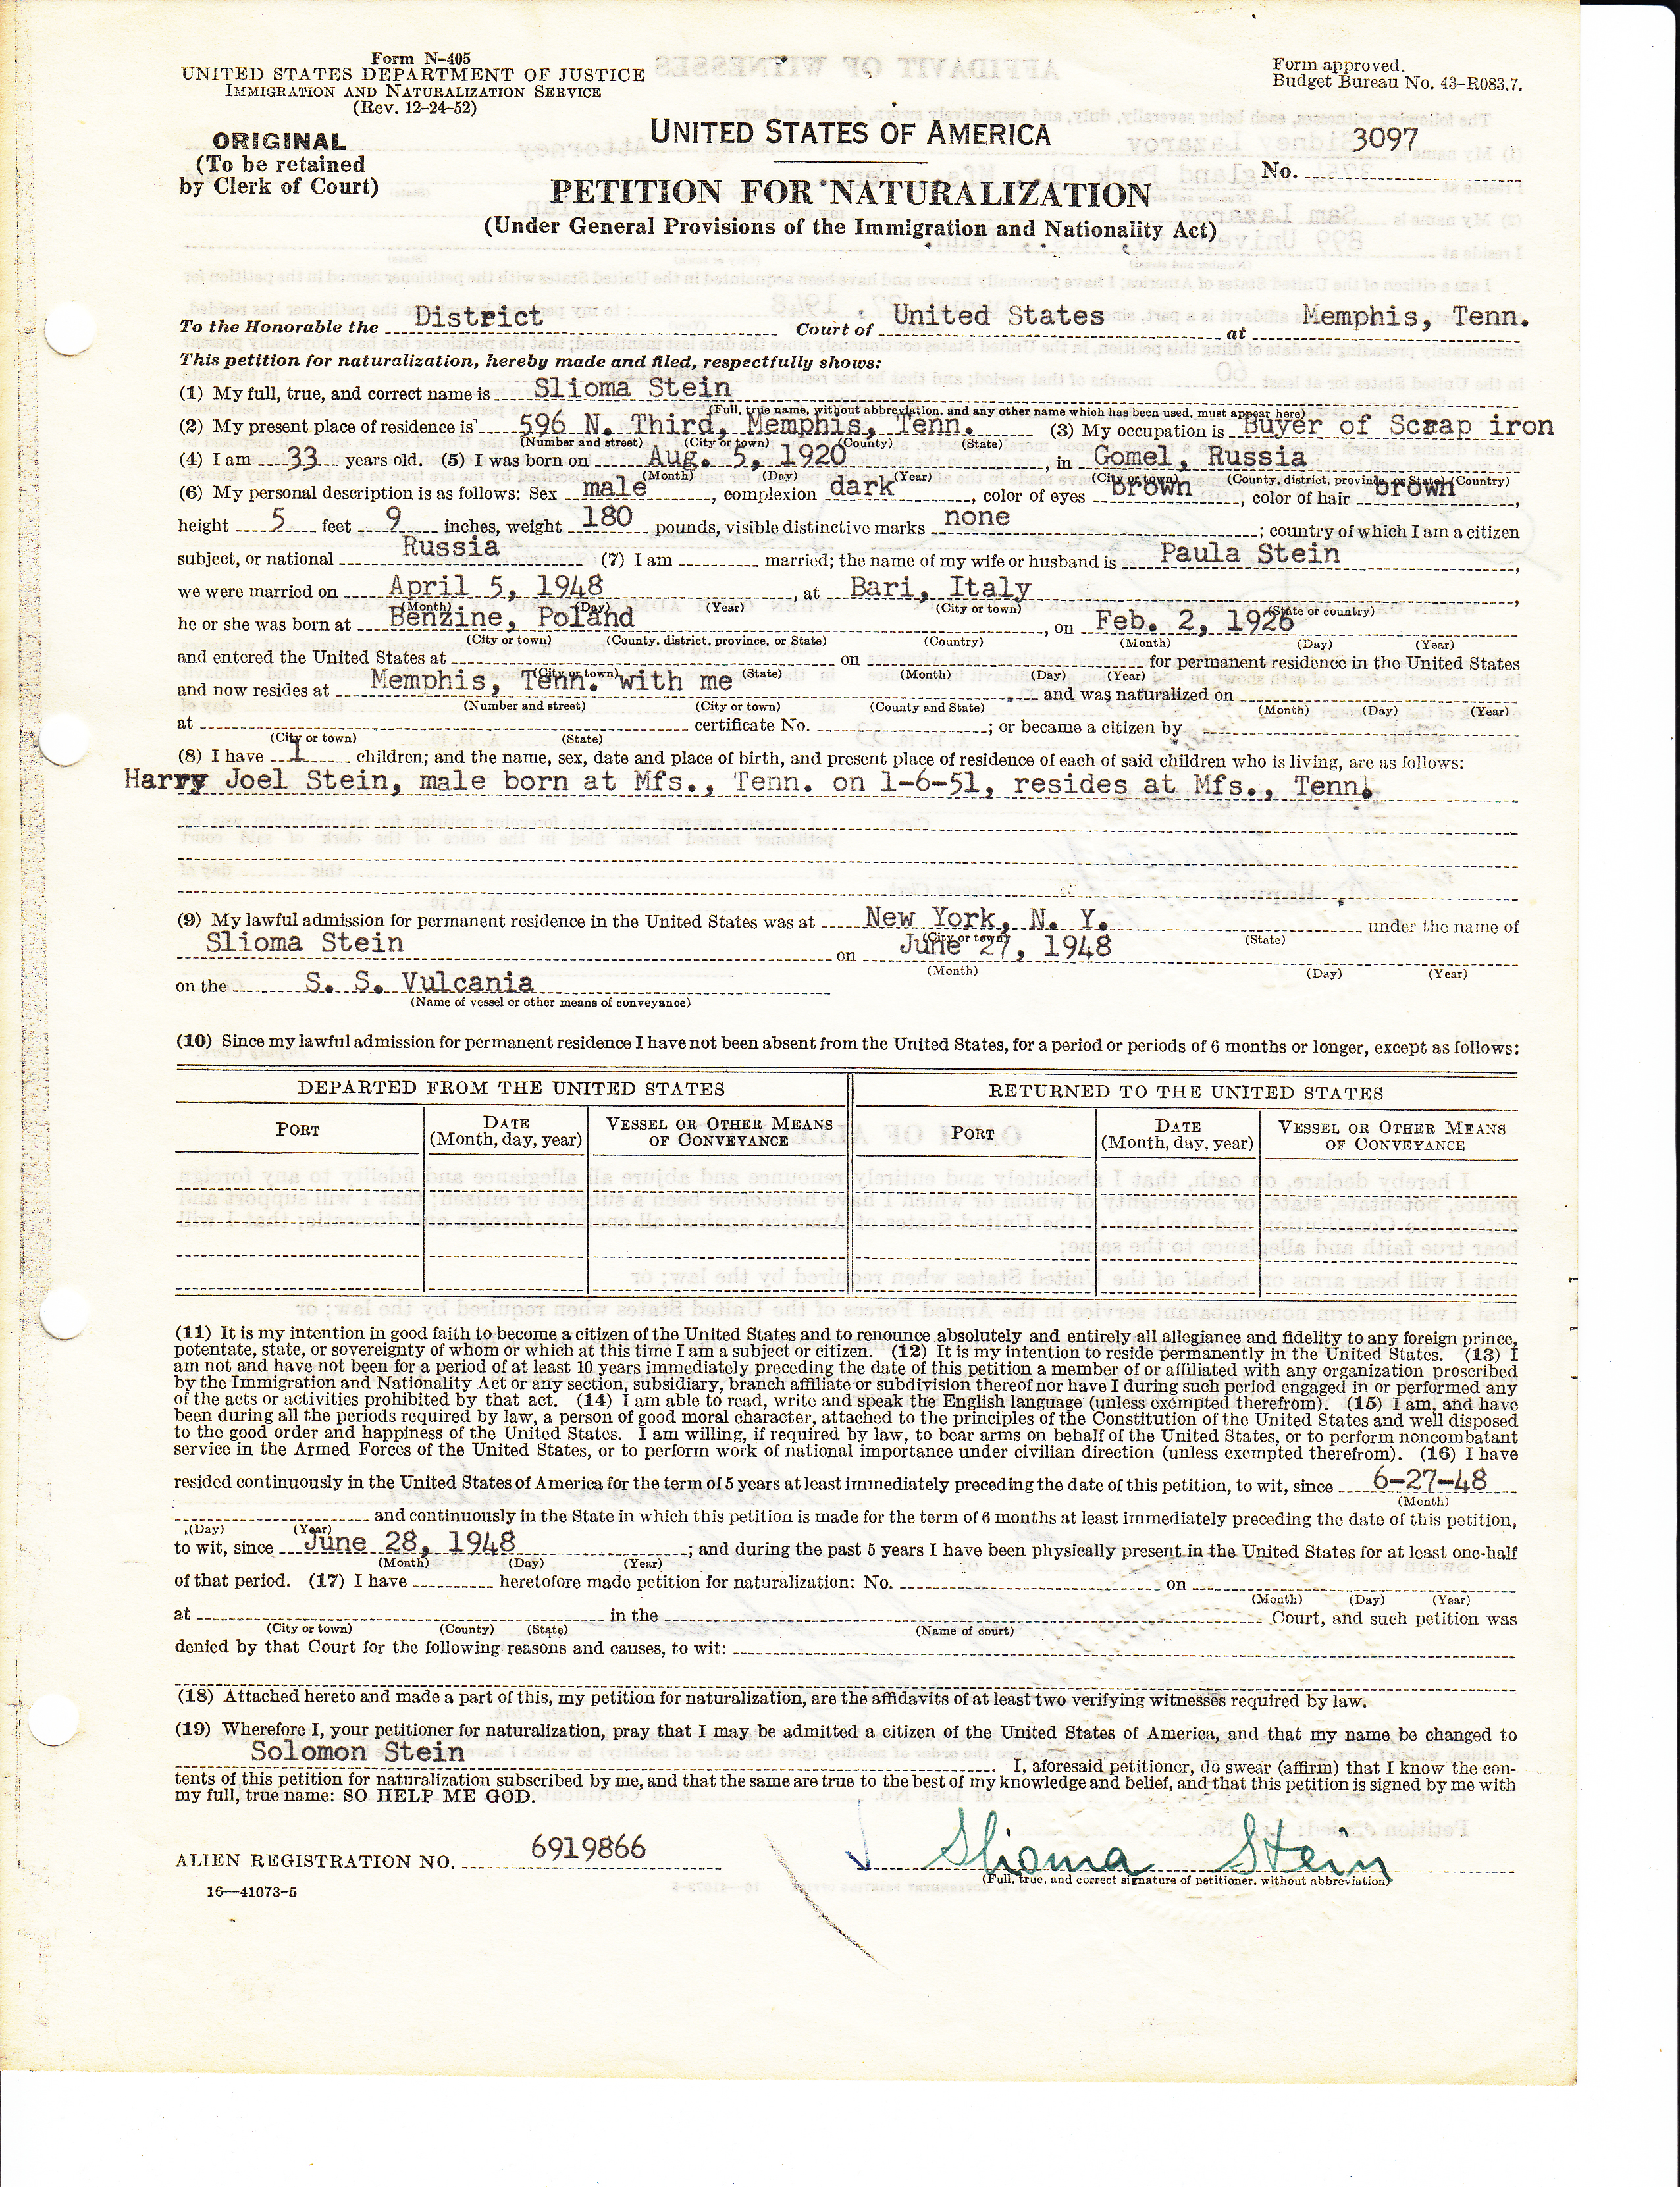 Form N-405
UNITED STATES DEPARTMENT OF JUSTICE
IMMIGRATION AND NATURALIZATION SERVICE
(Rev. 12-24-52)
Form approved.
Budget Bureau No. 43-R083.7.
ORIGINAL
(To be retained
by Clerk of Court)
UNITED STATES OF AMERICA
No. 3097
PETITION FOR NATURALIZATION
(Under General Provisions of the Immigration and Nationality Act)
To the Honorable the District Court of United States at Memphis, Tenn.
This petition for naturalization, hereby made and filed, respectfully shows:
(1) My full, true, and correct name is Slioma Stein
(Full, true name, without abbreviation, and any other name which has been used, must appear here)
(2) My present place of residence is 596 N. Third, Memphis, Tenn. (3) My occupation is Buyer of Scrap iron
(Number and street) (City or town) (County) (State)
(4) I am 33 years old. (5) I was born on Aug. 5, 1920, in Gomel, Russia
(Month) (Day) (Year) (City or town) (County, district, province, or State) (Country)
(6) My personal description is as follows: Sex male, complexion dark, color of eyes brown, color of hair brown,
height 5 feet 9 inches, weight 180 pounds, visible distinctive marks none; country of which I am a citizen
subject, or national Russia (7) I am married; the name of my wife or husband is Paula Stein,
we were married on April 5, 1948, at Bari, Italy,
(Month) (Day) (Year) (City or town) (State or country)
he or she was born at Benzine, Poland, on Feb. 2, 1926
(City or town) (County, district, province, or State) (Country) (Month) (Day) (Year)
and entered the United States at on for permanent residence in the United States
(City or town) (State) (Month) (Day) (Year)
and now resides at Memphis, Tenn. with me and was naturalized on
(Number and street) (City or town) (County and State) (Month) (Day) (Year)
at certificate No. ; or became a citizen by
(City or town) (State)
(8) I have 1 children; and the name, sex, date and place of birth, and present place of residence of each of said children who is living, are as follows:
Harry Joel Stein, male born at Mfs., Tenn. on 1-6-51, resides at Mfs., Tenn.
(9) My lawful admission for permanent residence in the United States was at New York, N. Y. under the name of
(City or town) (State)
Slioma Stein on June 27, 1948
(Month) (Day) (Year)
on the S. S. Vulcania
(Name of vessel or other means of conveyance)
(10) Since my lawful admission for permanent residence I have not been absent from the United States, for a period or periods of 6 months or longer, except as follows:
DEPARTED FROM THE UNITED STATES RETURNED TO THE UNITED STATES
PORT DATE (Month, day, year) VESSEL OR OTHER MEANS OF CONVEYANCE PORT DATE (Month, day, year) VESSEL OR OTHER MEANS OF CONVEYANCE
(11) It is my intention in good faith to become a citizen of the United States and to renounce absolutely and entirely all allegiance and fidelity to any foreign prince,
potentate, state, or sovereignty of whom or which at this time I am a subject or citizen. (12) It is my intention to reside permanently in the United States. (13) I
am not and have not been for a period of at least 10 years immediately preceding the date of this petition a member of or affiliated with any organization proscribed
by the Immigration and Nationality Act or any section, subsidiary, branch affiliate or subdivision thereof nor have I during such period engaged in or performed any
of the acts or activities prohibited by that act. (14) I am able to read, write and speak the English language (unless exempted therefrom). (15) I am, and have
been during all the periods required by law, a person of good moral character, attached to the principles of the Constitution of the United States and well disposed
to the good order and happiness of the United States. I am willing, if required by law, to bear arms on behalf of the United States, or to perform noncombatant
service in the Armed Forces of the United States, or to perform work of national importance under civilian direction (unless exempted therefrom). (16) I have
resided continuously in the United States of America for the term of 5 years at least immediately preceding the date of this petition, to wit, since 6-27-48
(Month)
and continuously in the State in which this petition is made for the term of 6 months at least immediately preceding the date of this petition,
(Day) (Year)
to wit, since June 28, 1948; and during the past 5 years I have been physically present in the United States for at least one-half
(Month) (Day) (Year)
of that period. (17) I have heretofore made petition for naturalization: No. on
(Month) (Day) (Year)
at in the Court, and such petition was
(City or town) (County) (State) (Name of court)
denied by that Court for the following reasons and causes, to wit:
(18) Attached hereto and made a part of this, my petition for naturalization, are the affidavits of at least two verifying witnesses required by law.
(19) Wherefore I, your petitioner for naturalization, pray that I may be admitted a citizen of the United States of America, and that my name be changed to
Solomon Stein
I, aforesaid petitioner, do swear (affirm) that I know the con-
tents of this petition for naturalization subscribed by me, and that the same are true to the best of my knowledge and belief, and that this petition is signed by me with
my full, true name: SO HELP ME GOD.
ALIEN REGISTRATION NO. 6919866
Slioma Stein
(Full, true, and correct signature of petitioner, without abbreviation)
16—41073-5